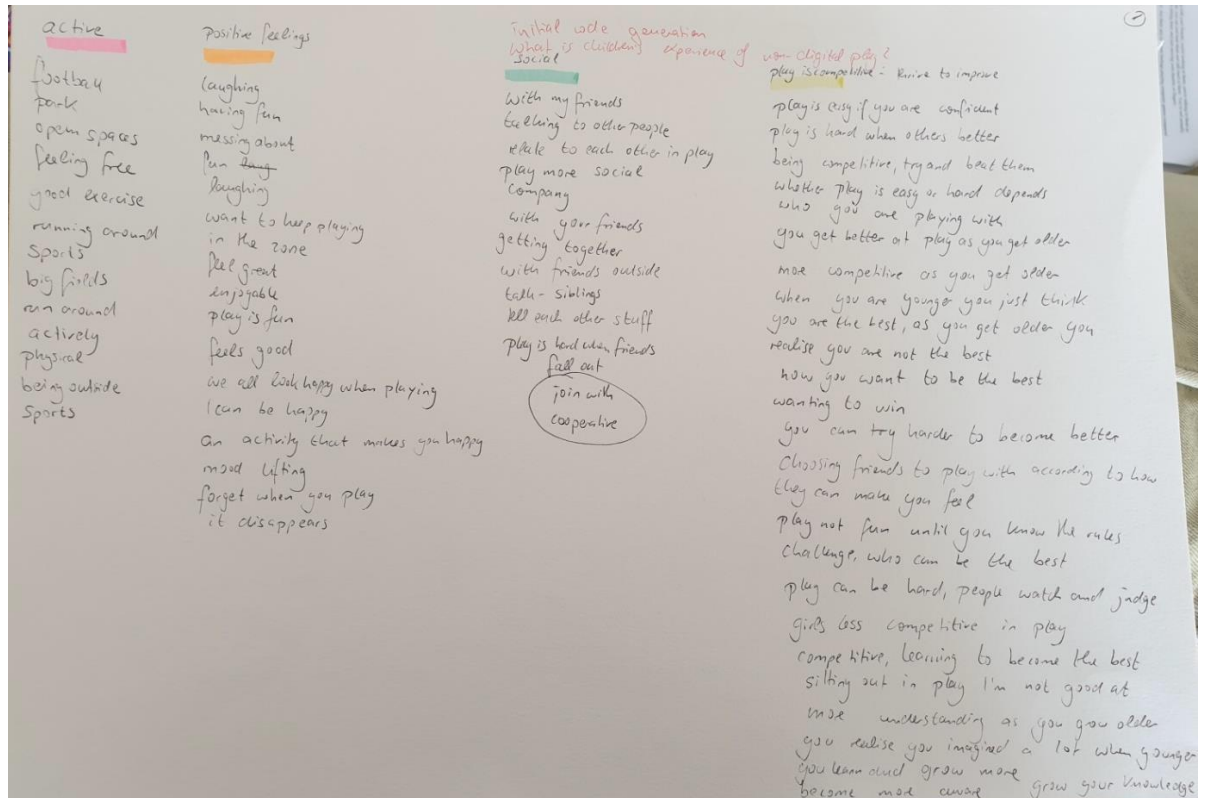 2
initial code generation
What is childrens experience of non-digital play?
active
football
park
open spaces
feeling free
good exercise
running around
Sports
big fields
run around
actively
physical
being outside
Sports
positive feelings
laughing
having fun
messing about
fun
laughing
want to keep playing
in the zone
feel great
enjoyable
play is fun
feels good
we all look happy when playing
I can be happy
an activity that makes you happy
mood lifting
forget when you play
it disappears
social
with my friends
talking to other people
relate to each other in play
play more social
company
with your friends
getting together
with friends outside
talk - siblings
tell each other stuff
play is hard when friends
fall out
join with
cooperative
play is competitive - thrive to improve
play is easy if you are confident
play is hard when others better
being competitive, try and beat them
whether play is easy or hard depends
who you are playing with
you get better at play as you get older
more competitive as you get older
when you are younger you just think
you are the best, as you get older you
realise you are not the best
how you want to be the best
wanting to win
you can try harder to become better
Choosing friends to play with according to how
they can make you feel
play not fun until you know the rules
challenge, who can be the best
play can be hard, people watch and judge
girls less competitive in play
competitive, learning to become the best
sitting out in play I'm not good at
more understanding as you grow older
you realise you imagined a lot when younger
you learn and grow more grow your knowledge
become more aware